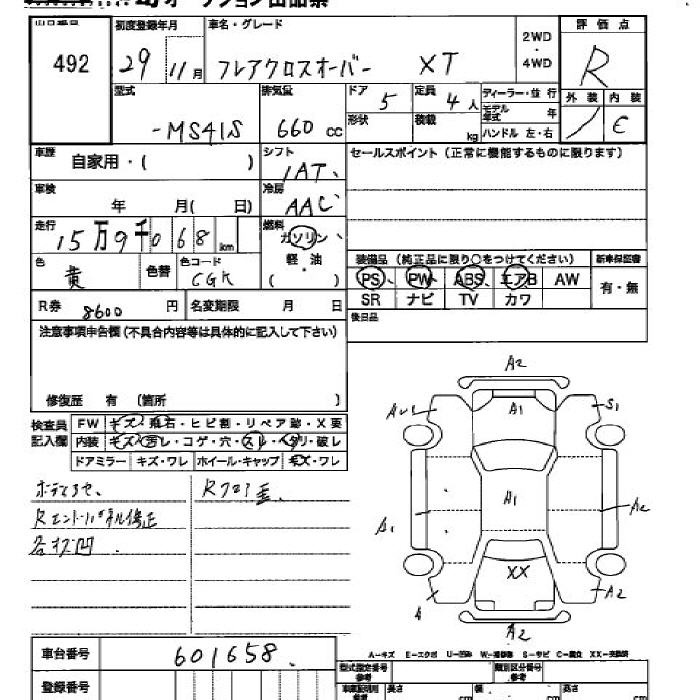 オークション出品票
出品番号 初度登録年月 車名・グレード 2WD・4WD 評価点
492 29 11月 フレアクロスオーバー XT R
型式 排気量 ドア 定員 ディーラー・並行 外装 内装
-MS41S 660 cc 5 4人 モデル年式 年 / C
形状 積載 kg ハンドル 左・右
車歴 自家用・( ) シフト IAT セールスポイント(正常に機能するものに限ります)
車検 年 月( 日) 冷房 AAC
走行 15万9千068 km 燃料 ガソリン・軽油・( ) 装備品(純正品に限り○をつけてください) 新車保証書
色 黄 色替 色コード CGK PS PW ABS エアB AW 有・無
R券 8600 円 名変期限 月 日 SR ナビ TV カワ
注意事項申告欄(不具合内容等は具体的に記入して下さい) 後日品
修復歴 有(箇所 )
検査員記入欄 FW キズ・飛石・ヒビ割・リペア跡・X要
内装 キズ・汚レ・コゲ・穴・スレ・ヘタリ・破レ
ドアミラー キズ・ワレ ホイール・キャップ キズ・ワレ
Rエンドパネル修正
A2
A1 S1
A1 A2
A1
XX
A A2
A2
A-キズ E-エクボ U-凹み W-補修跡 S-サビ C-腐食 XX-交換済
車台番号 601658 型式指定番号 参考 類別区分番号 参考
登録番号 車庫証明用 参考 長さ cm 幅 cm 高さ cm